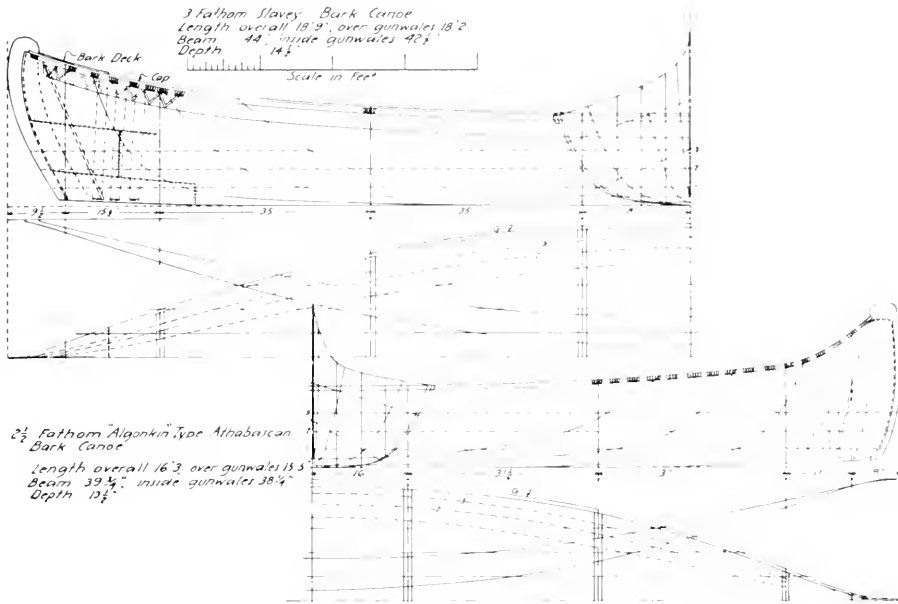 3 Fathom Slavey Bark Canoe
Length overall 18'9", over gunwales 18'2
Beam 44" inside gunwales 42½"
Depth 14½"
Scale in Feet
Bark Deck
Cap
9½ 15½ 35 35
2½ Fathom "Algonkin" Type Athabascan
Bark Canoe
Length overall 16'3, over gunwales 15'5"
Beam 39¾" inside gunwales 38¼"
Depth 13½"
16 31½ 31 9